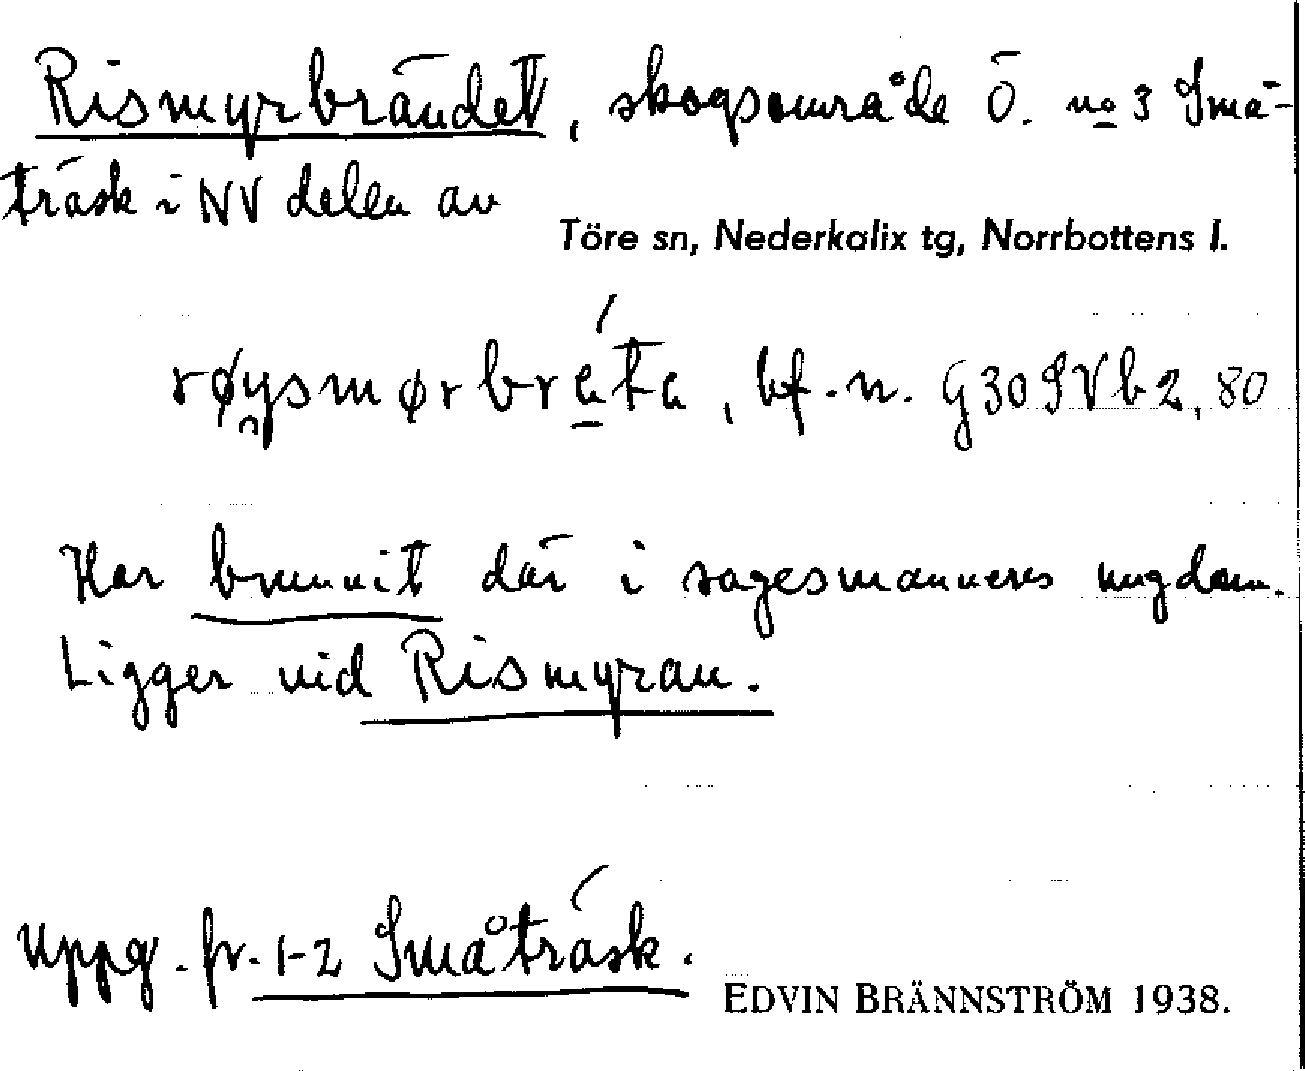 Rismyrbrändet, skogsområde Ö. no 3 Små-
träsk i NV delen av
Töre sn, Nederkalix tg, Norrbottens l.
røysmørbráta, bf. n. G30SVb2,80
Har brunnit där i sagesmannens ungdom.
Ligger vid Rismyran.
Uppg. fr. 1-2 Småträsk.
EDVIN BRÄNNSTRÖM 1938.